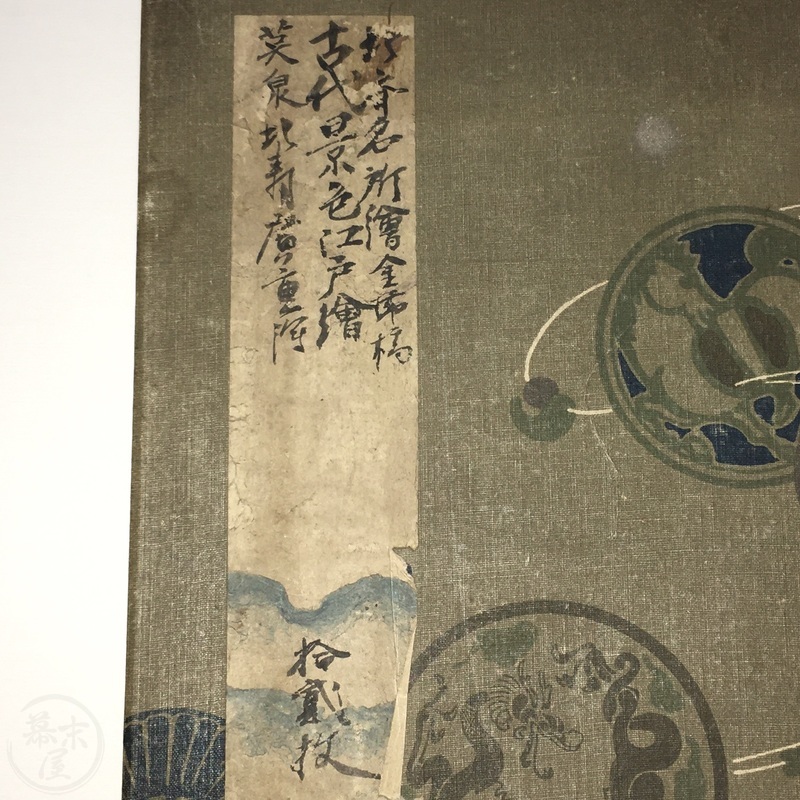 北斎名所繪全部揃
古代景色江戸繪
英泉北壽廣重阿
拾貳枚
幕末屋